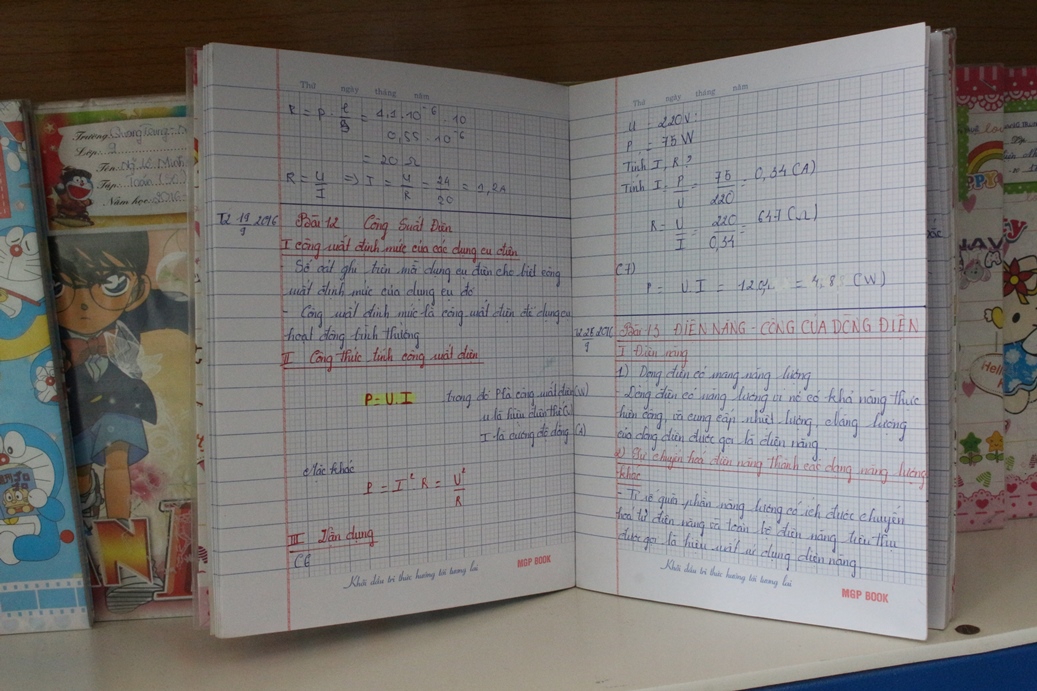 Trường: Quang Trung
Lớp: 2
Tên: Ng Lê Minh
Tập: Toán
Năm học: 2016
Thứ ngày tháng năm
R = P . l/S = 1,1.10⁻⁶ . 10
0,55 . 10⁻⁶
= 20 Ω
R = U/I => I = U/R = 24/20 = 1,2A
T2 19/9 2016 Bài 12 Công Suất Điện
I công suất định mức của các dụng cụ điện
- Số oát ghi trên mỗi dụng cụ điện cho biết công
suất định mức của dụng cụ đó
- Công suất định mức là công suất điện để dụng cụ
hoạt động bình thường
II Công thức tính công suất điện
P = U.I trong đó P là công suất điện (W)
U là hiệu điện thế (V)
I là cường độ dòng (A)
cách khác
P = I² . R = U²/R
III Vận dụng
C6
Khởi đầu tri thức hướng tới tương lai
MGP BOOK
Thứ ngày tháng năm
U = 220V
P = 75W
Tính I, R ?
Tính I = P/U = 75/220 = 0,34 (A)
R = U/I = 220/0,34 = 647 (Ω)
C7)
P = U.I = 12.0,4 = 4,8 (W)
28/9 2016 Bài 13 ĐIỆN NĂNG - CÔNG CỦA DÒNG ĐIỆN
I Điện năng
1) Dòng điện có mang năng lượng
- Dòng điện có năng lượng vì nó có khả năng thực
hiện công, và cung cấp nhiệt lượng, năng lượng
của dòng điện được gọi là điện năng
2) Sự chuyển hoá điện năng thành các dạng năng lượng
khác
- Tỉ số giữa phần năng lượng có ích được chuyển
hoá từ điện năng và toàn bộ điện năng tiêu thụ
được gọi là hiệu suất sử dụng điện năng
Khởi đầu tri thức hướng tới tương lai
MGP BOOK
Hello